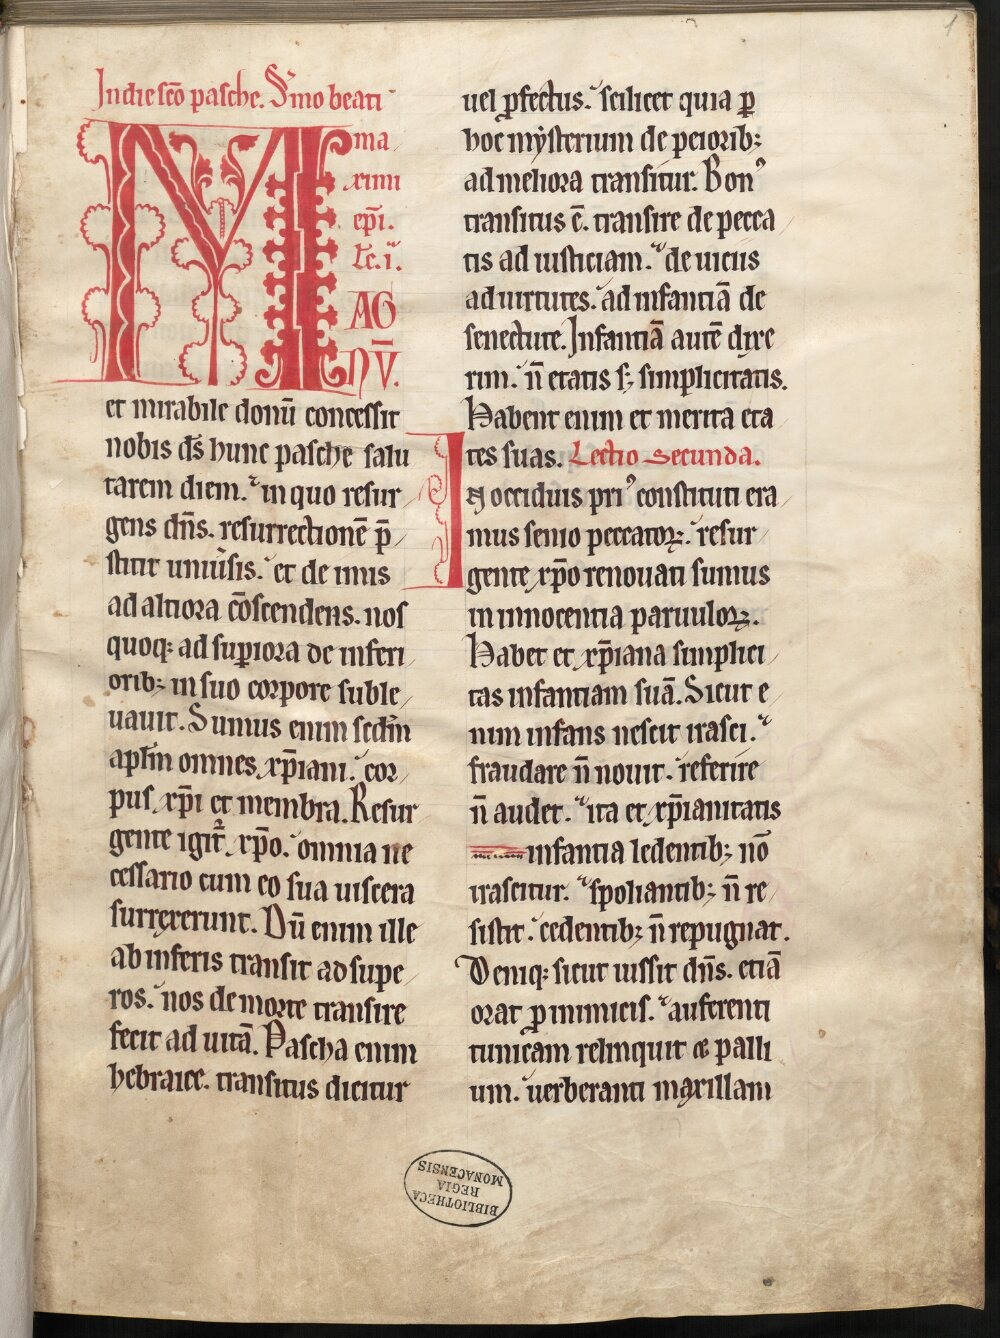 1
In die sc̄o pasche. Sʳmo beati
M
ma
ximi
ep̄i.
Lc̄.i.
AG
NV̄.
et mirabile donū concessit
nobis d̄s hunc pasche salu
tarem diem. in quo resur
gens dn̄s. resurrectionē p̄
stitit uniūsis. et de imis
ad altiora cōscendens. nos
quoq; ad suꝑiora de inferi
orib; in suo corpore suble
uauit. Sumus enim scd̄m
apl̄m omnes xp̄iani. cor
pus xp̄i et membra. Resur
gente igit̄ xp̄o. omnia ne
cessario cum eo sua uiscera
surrexerunt. Dū enim ille
ab inferis transit ad supe
ros. nos de morte transire
fecit ad uitā. Pascha enim
hebraice. transitus dicitur
uel ꝑfectus. scilicet quia ꝑ
hoc mẏsterium de peiorib;
ad meliora transitur. Bonꝰ
transitus ē. transire de pecca
tis ad iusticiam. de uiciis
ad uirtutes. ad infantiā de
senectute. Infantiā autē dixe
rim. n̄ etatis s; simplicitatis.
Habent enim et merita eta
tes suas. Lectio secunda.
IN occiduis priꝰ constituti era
mus senio peccatoꝝ. resur
gente xp̄o renouati sumus
in innocentia paruuloꝝ.
Habet et xp̄iana simplici
tas infantiam suā. Sicut e
nim infans nescit irasci.
fraudare n̄ nouit. referire
n̄ audet. ita et xp̄ianitatis
infantia ledentib; nō
irascitur. spoliantib; n̄ re
sistit. cedentib; n̄ repugnat.
Deniq; sicut iussit dn̄s. etiā
orat ꝓ inimicis. auferenti
tunicam relinquit & palli
um. uerberanti maxillam
BIBLIOTHECA
REGIA
MONACENSIS